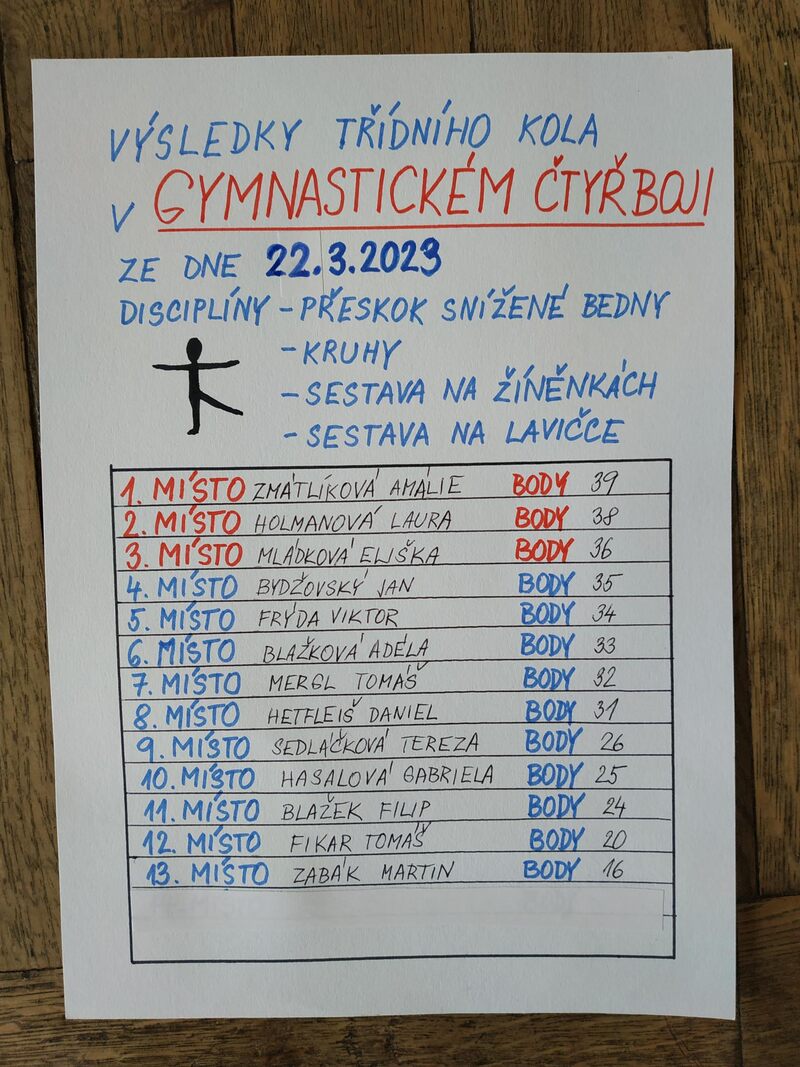 VÝSLEDKY TŘÍDNÍHO KOLA
V GYMNASTICKÉM ČTYŘBOJI
ZE DNE 22.3.2023
DISCIPLÍNY - PŘESKOK SNÍŽENÉ BEDNY
- KRUHY
- SESTAVA NA ŽÍNĚNKÁCH
- SESTAVA NA LAVIČCE
1. MÍSTO ZMATLÍKOVÁ AMÁLIE BODY 39
2. MÍSTO HOLMANOVÁ LAURA BODY 38
3. MÍSTO MLÁDKOVÁ ELIŠKA BODY 36
4. MÍSTO BYDŽOVSKÝ JAN BODY 35
5. MÍSTO FRÝDA VIKTOR BODY 34
6. MÍSTO BLAŽKOVÁ ADÉLA BODY 33
7. MÍSTO MERGL TOMÁŠ BODY 32
8. MÍSTO HETFLEIŠ DANIEL BODY 31
9. MÍSTO SEDLÁČKOVÁ TEREZA BODY 26
10. MÍSTO HASALOVÁ GABRIELA BODY 25
11. MÍSTO BLAŽEK FILIP BODY 24
12. MÍSTO FIKAR TOMÁŠ BODY 20
13. MÍSTO ZABÁK MARTIN BODY 16